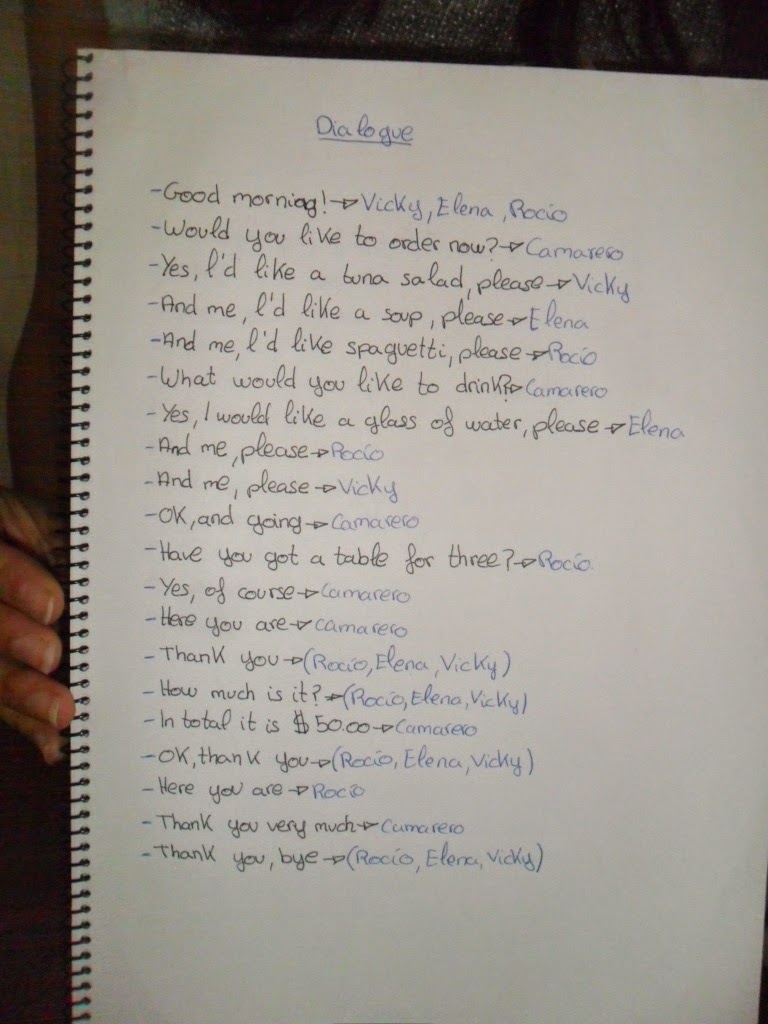 Dialogue
-Good morning!→Vicky, Elena, Rocío
-Would you like to order now?→Camarero
-Yes, I'd like a tuna salad, please→Vicky
-And me, I'd like a soup, please→Elena
-And me, I'd like spaguetti, please→Rocío
-What would you like to drink?→Camarero
-Yes, I would like a glass of water, please→Elena
-And me, please→Rocío
-And me, please→Vicky
-OK, and going→Camarero
-Have you got a table for three?→Rocío.
-Yes, of course→Camarero
-Here you are→camarero
-Thank you→(Rocío, Elena, Vicky)
-How much is it?→(Rocío, Elena, Vicky)
-In total it is $50.00→Camarero
-OK, thank you→(Rocío, Elena, Vicky)
-Here you are→Rocío
-Thank you very much→Camarero
-Thank you, bye→(Rocío, Elena, Vicky)